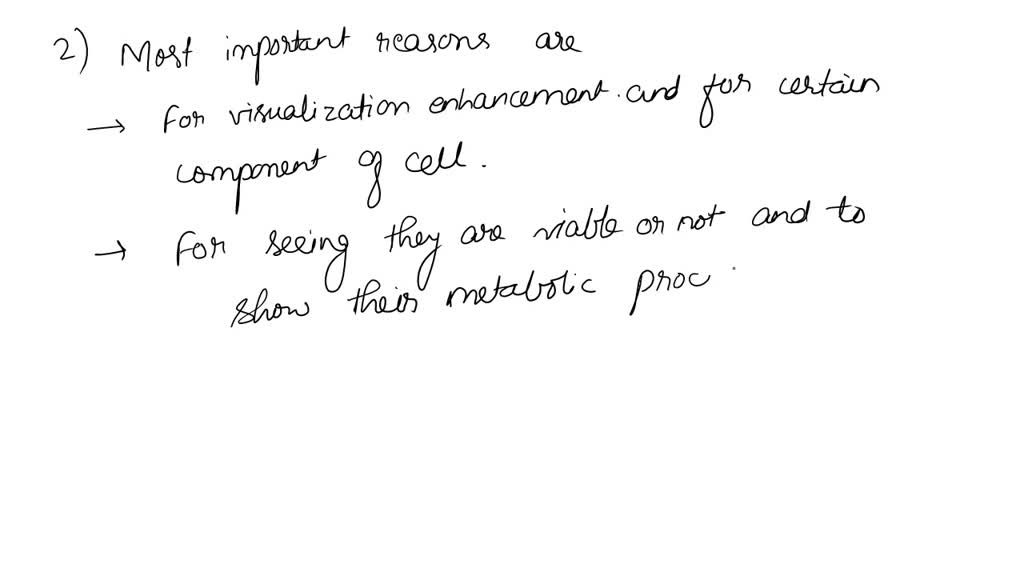 2) Most important reasons are
→ For visualization enhancement. and for certain
component of cell.
→ For seeing they are viable or not and to
show their metabolic proc